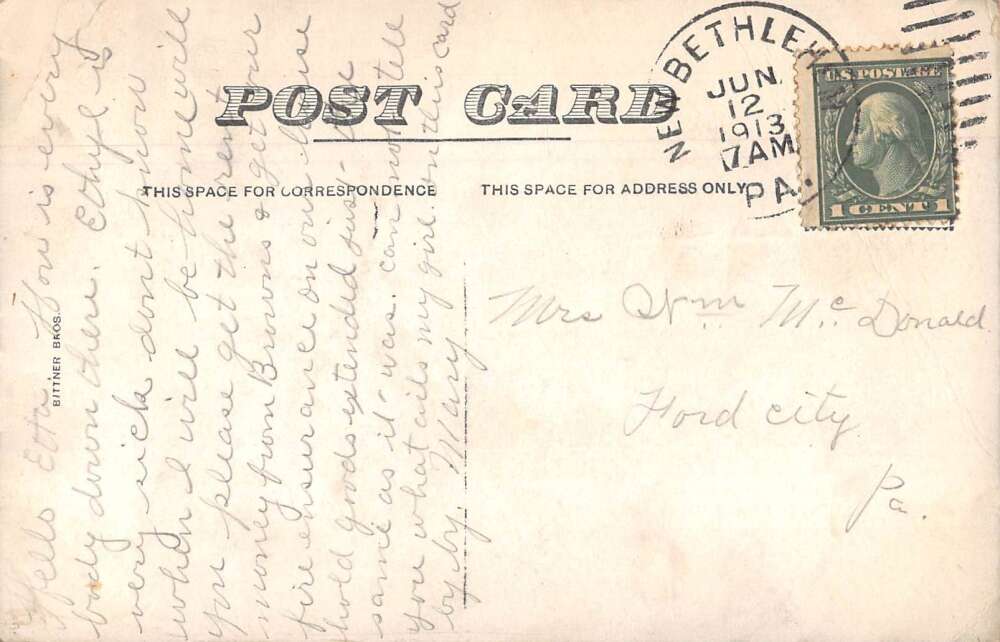 POST CARD
THIS SPACE FOR CORRESPONDENCE
THIS SPACE FOR ADDRESS ONLY
NEW BETHLEHEM
JUN
12
1913
7 AM
PA.
U.S. POSTAGE
1 CENT 1
BITTNER BROS.
Hello Etta How is every
body down there. Ethyl is
very sick dont know
when I will be home will
you please get the rent
money from Browns & get our
fire ensurance on our house
hold goods extended just the
same as it was. can not tell
you what ails my girl on this card
by by. Mary
Mrs Wm McDonald
Ford city
Pa.